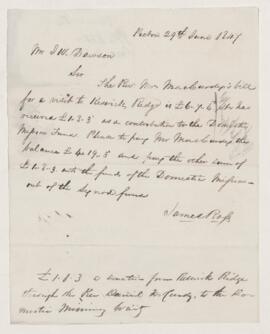 Pictou 29th June 1847
Mr J. W. Dawson
Sir
The Rev. Mr MacCurdy's bill
for a visit to Keswick Ridge is £6.7.6 he has
received £1.8.3 as a contribution to the Domestic
Mission Fund Please to pay Mr MacCurdy the
balance £4.19.3 and pay the other sum of
£1.8.3 into the funds of the Domestic Mission
out of the Synod funds
James Ross
£1.8.3 a donation from Keswick Ridge
through the Rev Daniel McCurdy, to the Do-
mestic Missionary Society